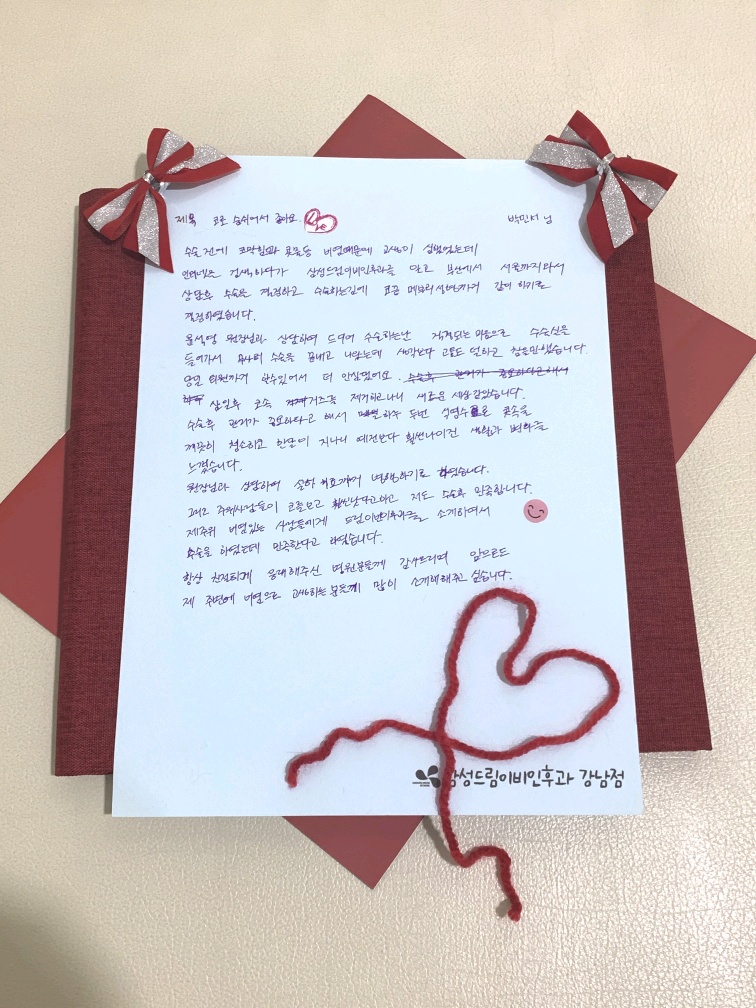 제목 코로 숨쉬어서 좋아요. 박민서 님
수술 전에 코막힘과 콧물등 비염때문에 고생이 심했었는데
인터넷으로 검색하다가 삼성드림이비인후과를 알고 부산에서 서울까지 와서
상담후 수술을 결정하고 수술하는김에 코끝 까지 같이 하기로
결정하였습니다.
원장님과 상담하여 드디어 수술하는날 걱정되는 마음으로 수술실을
들어가서 수술을 끝내고 나왔는데 생각보다 고통도 덜하고 참을만했습니다.
당일 퇴원까지 할수있어서 더 안심했어요. 수술후 관리가 중요하다고해서
삼일후 코속 거즈를 제거하고나니 새로운 세상 같았습니다.
수술후 관리가 중요하다고 해서 하루 두번 식염수로 콧속을
깨끗히 청소하고 한달이 지나니 예전보다 훨씬나아진 생활과 변화를
느꼈습니다.
원장님과 상담하여 하였습니다.
그리고 주위사람들이 코를보고 훨씬낫다고하고 저도 수술후 만족합니다.
제주위 비염있는 사람들에게 드림이비인후과를 소개하여서
수술을 하였는데 만족한다고 하였습니다.
항상 친절하게 응대해주신 병원분들께 감사드리며 앞으로도
제 주변에 비염으로 고생하는 분들께 많이 소개해주고 싶습니다.
삼성드림이비인후과 강남점